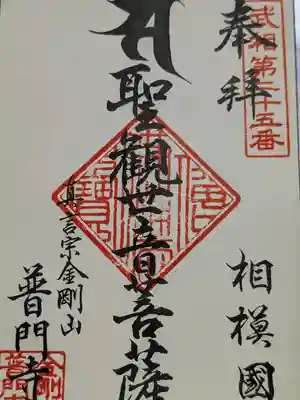 武相第三十五番
奉拝
相模國
聖観世音菩薩
真言宗金剛山
普門寺